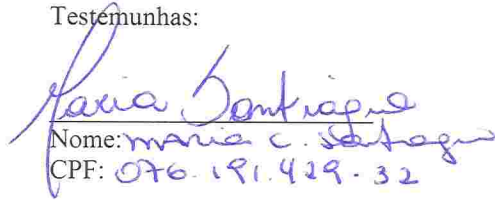 Testemunhas:
Maria Santiago
Nome: Maria C. Santiago
CPF: 076.191.429-32